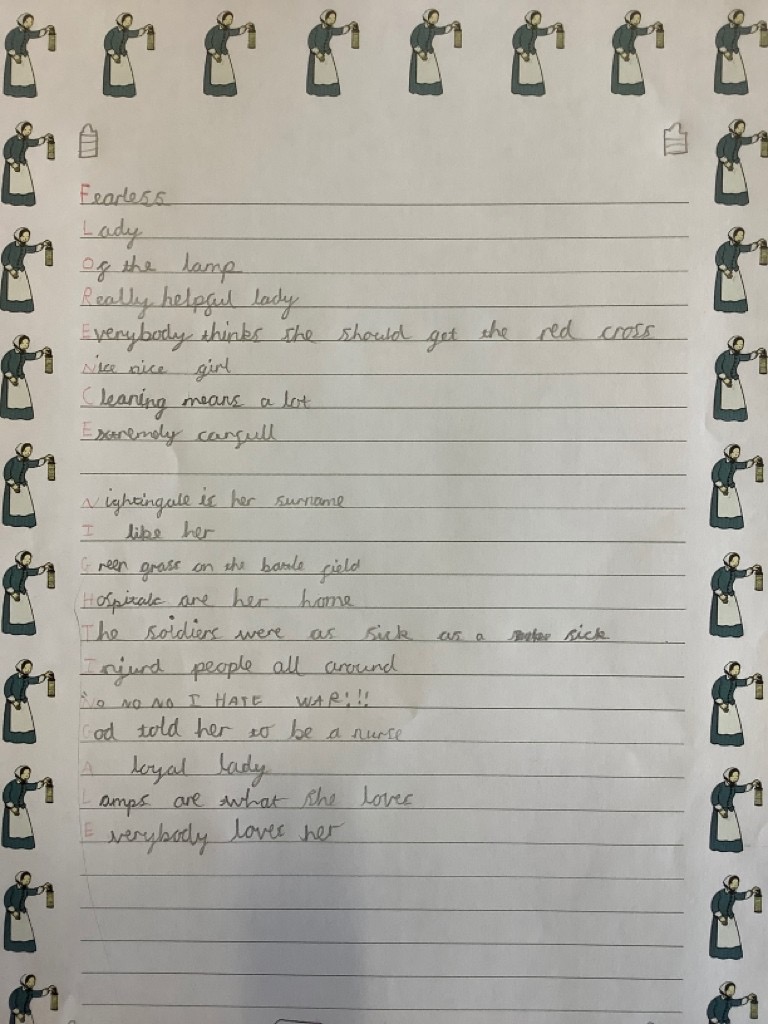 Fearless
Lady
Of the lamp
Really helpful lady
Everybody thinks she should get the red cross
Nice nice girl
Cleaning means a lot
Extremely carfull
Nightingale is her surname
I like her
Green grass on the battle field
Hospitals are her home
The soldiers were as sick as a sick
Injurd people all around
No NO NO I HATE WAR!!!
God told her to be a nurse
A loyal lady
Lamps are what she loves
Everybody loves her